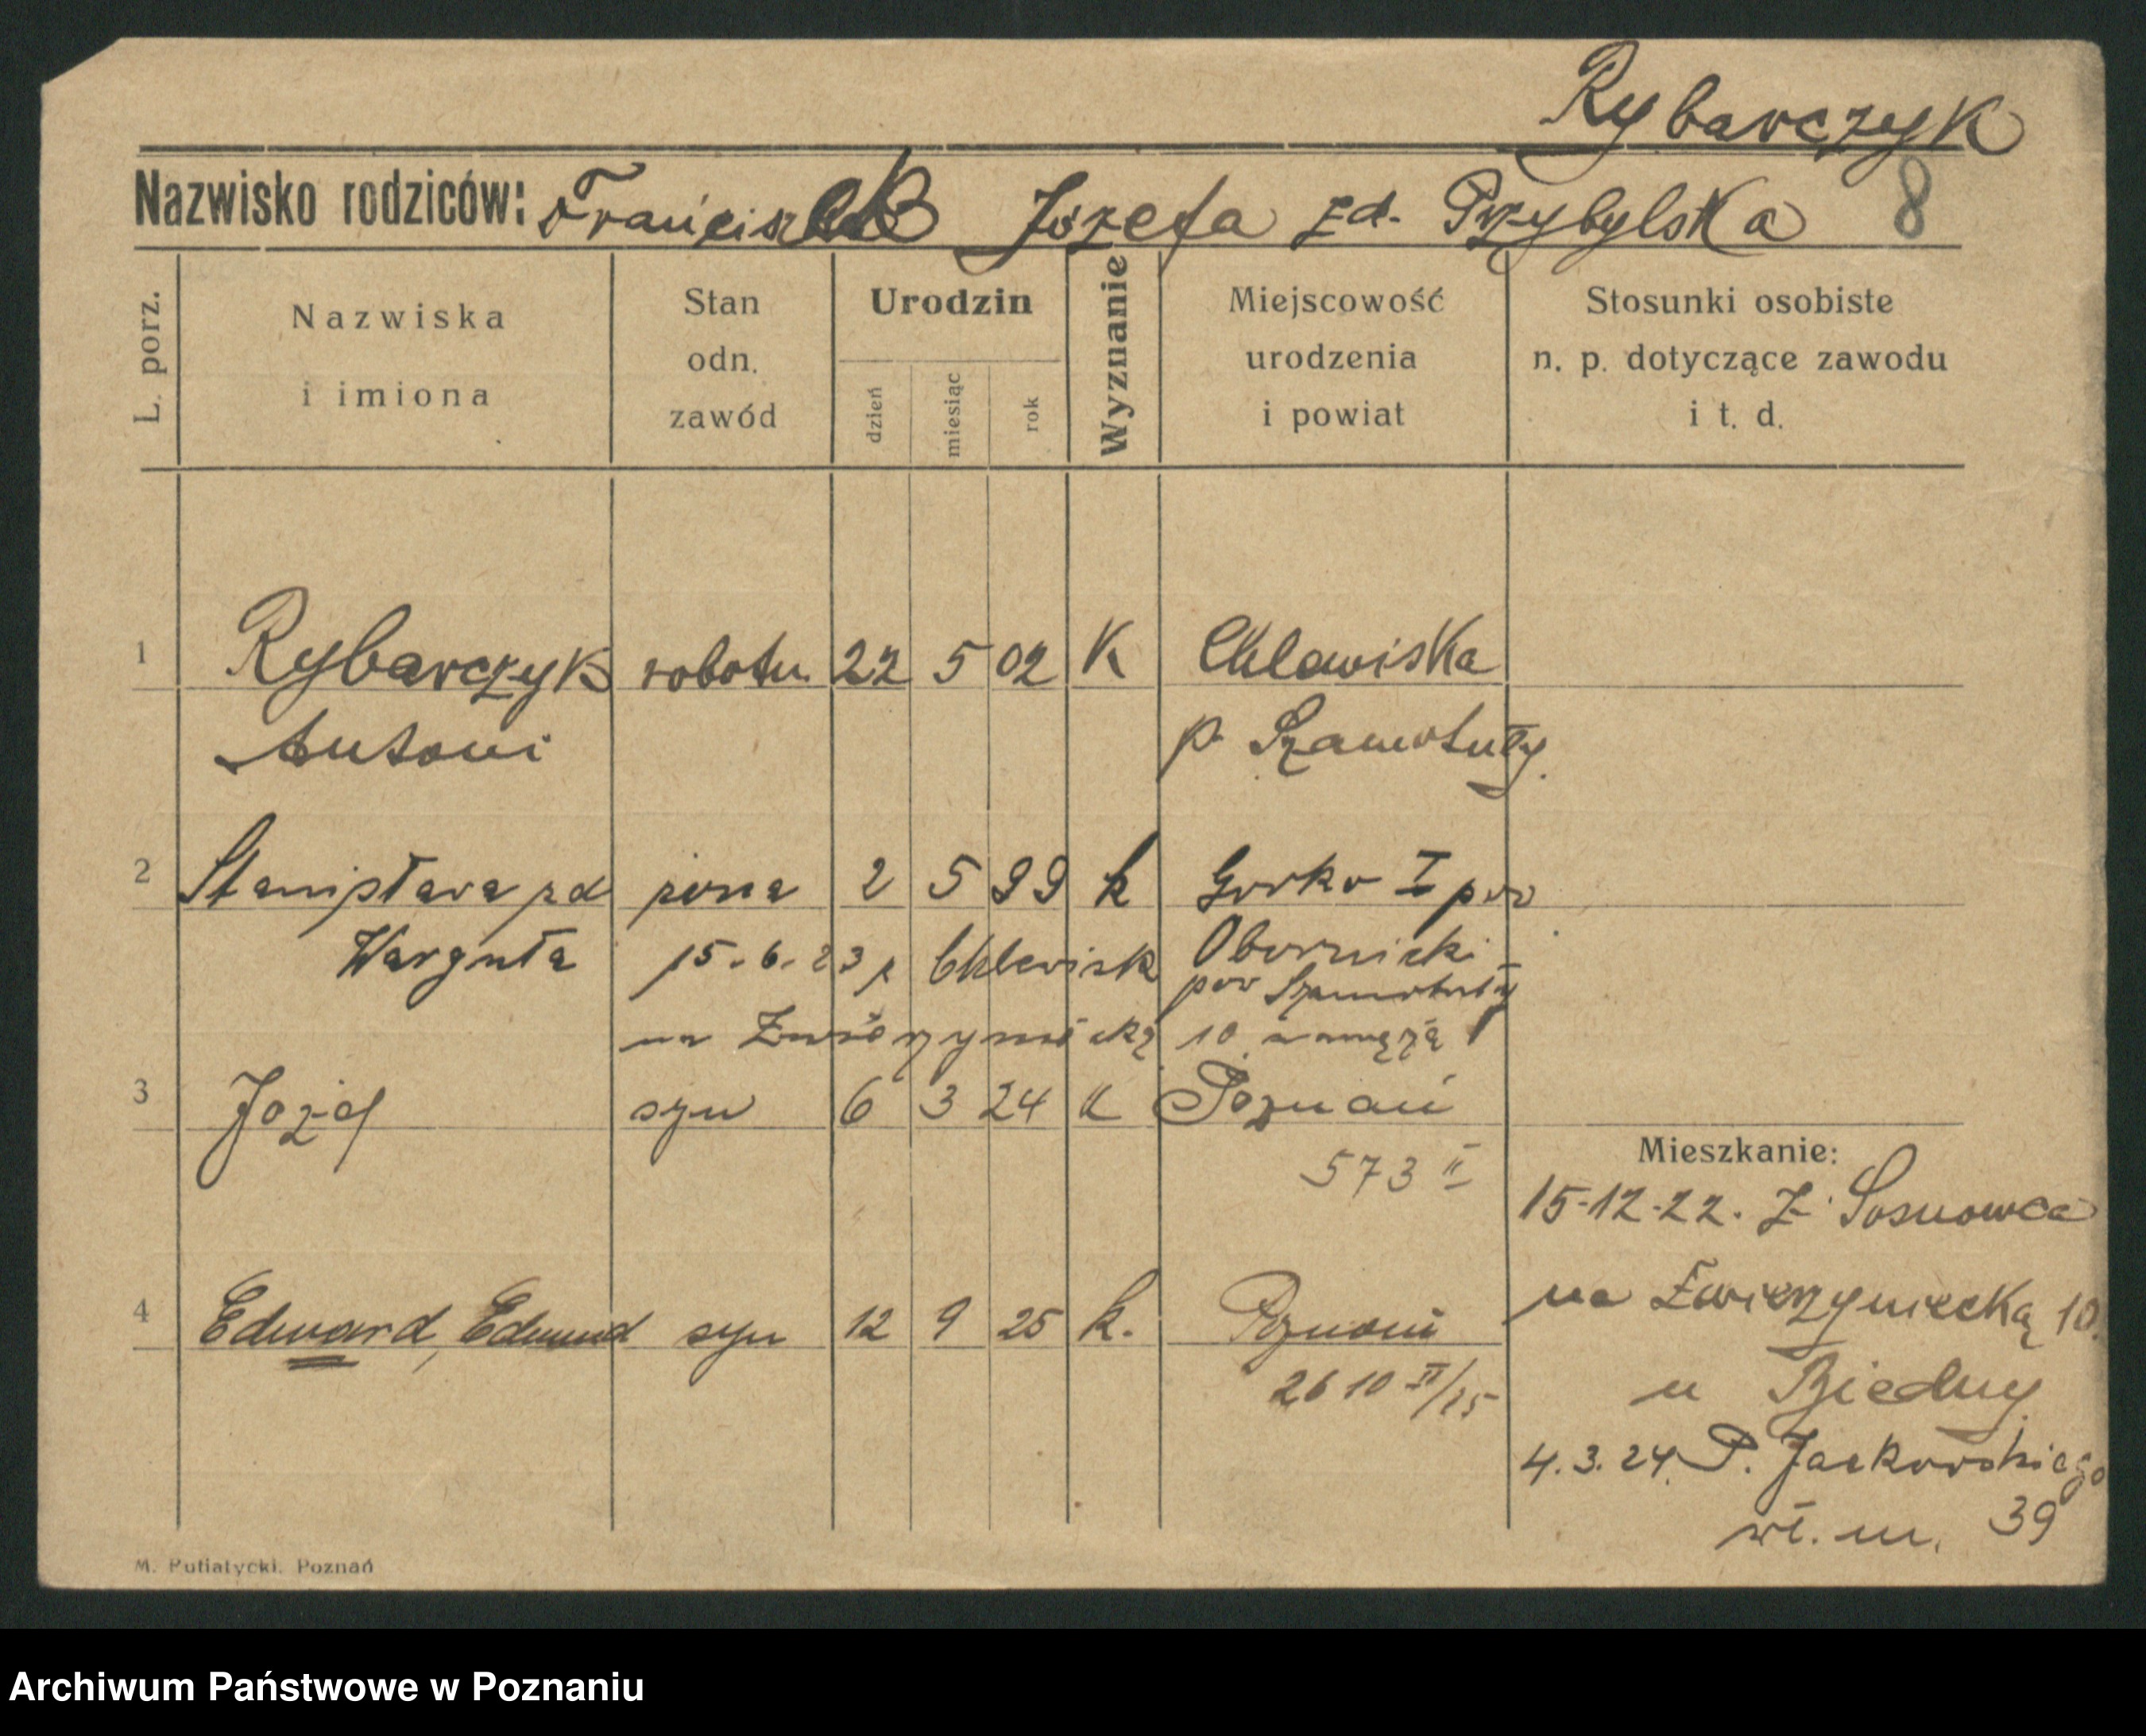 Rybarczyk
Nazwisko rodziców: Franciszek Józefa zd. Przybylska 8
L. porz.
Nazwiska
i imiona
Stan
odn.
zawód
Urodzin
dzień
miesiąc
rok
Wyznanie
Miejscowość
urodzenia
i powiat
Stosunki osobiste
n. p. dotyczące zawodu
i t. d.
1 Rybarczyk robotn. 22 5 02 K Chlewiska
Antoni p. Szamotuły
2 Stanisława zd żona 2 5 99 k Gorka I pow
Warguła 15.6.23 z Chlewisk Obornicki
pow Szamotuły
na Zwierzyniecką 10
3 Józef syn 6 3 24 K Poznań
573 II
Mieszkanie:
15-12-22. Z Sosnowca
4 Edward, Edmund syn 12 9 25 k. Poznań
na Zwierzyniecką 10.
2610 II/25
u Biedny
4.3.24. P. Jackowskiego
wł. m. 39
M. Putiatycki. Poznań
Archiwum Państwowe w Poznaniu